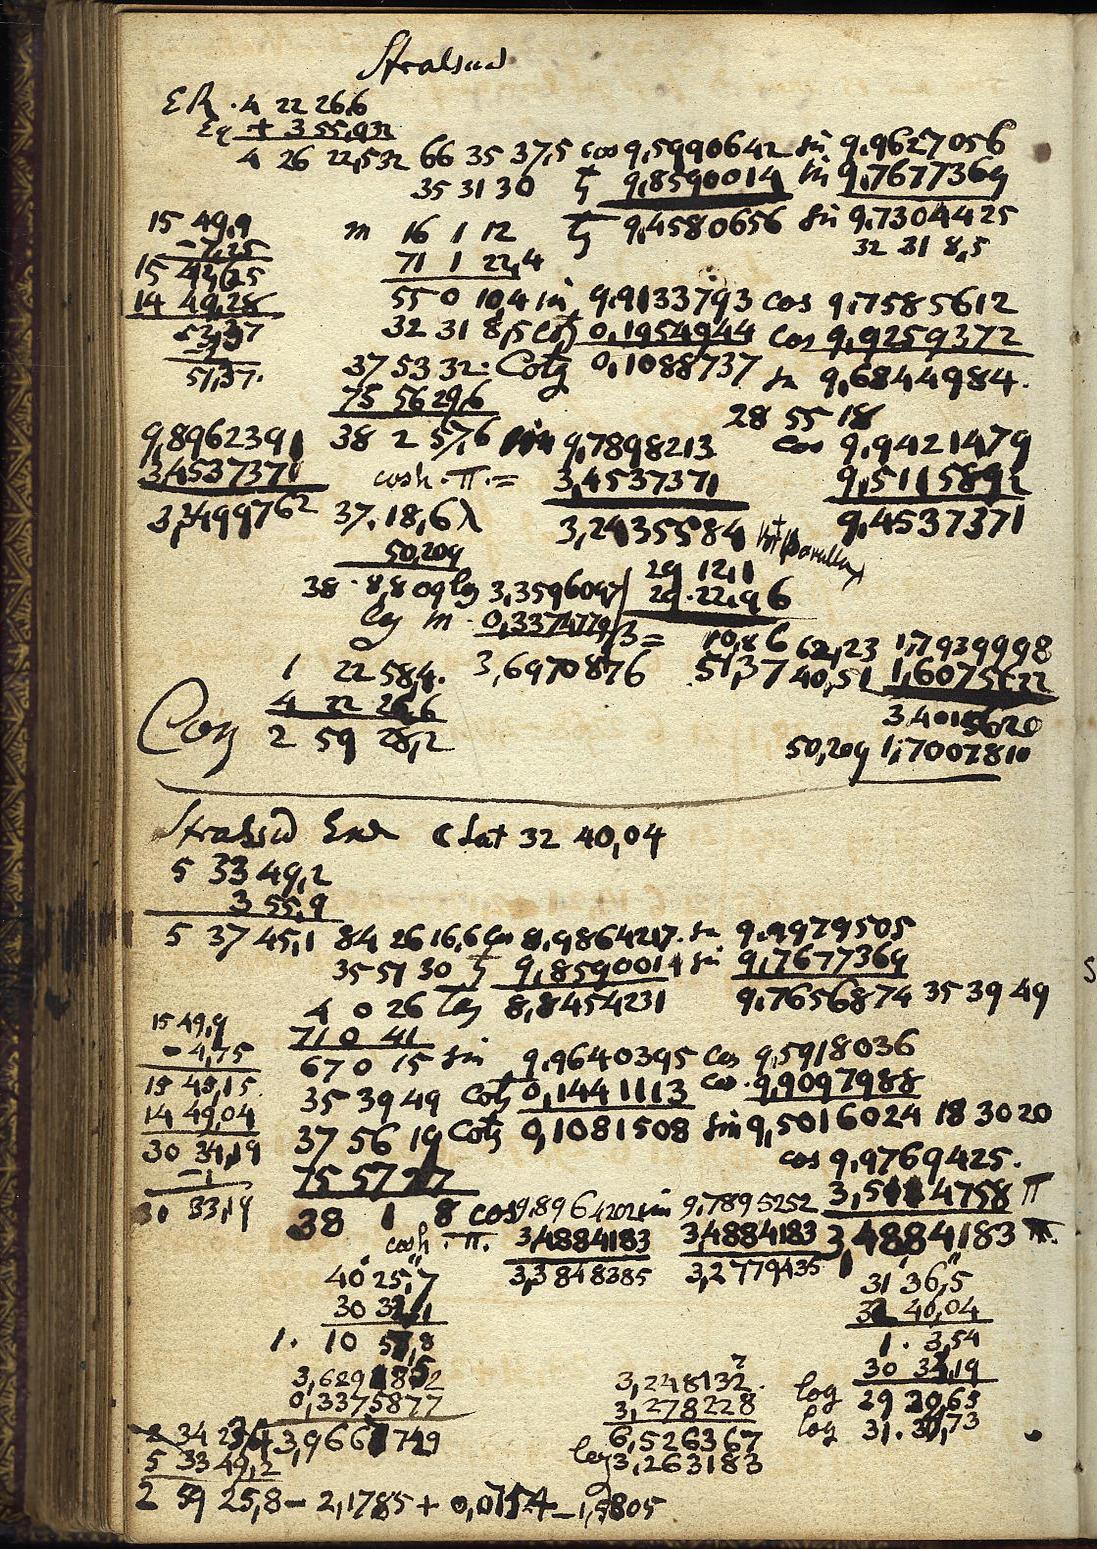 Stralsund
ER . 4 22 26,6
+ 3 55,932
4 26 22,532 66 35 37,5 cos 9,5990642 sin 9,9627056
35 31 30 tg 9,8590014 sin 9,7677369
m 16 1 12 tg 9,4580656 sin 9,7304425
15 49,9
- 7,25
71 1 22,4 32 31 8,5
15 42,625
14 49,28
55 0 10,4 sin 9,9133793 cos 9,7585612
53,37
32 31 8,5 Cotg 0,1954944 cos 9,9259372
51,37.
37 53 32. Cotg 0,1088737 sin 9,6844984.
75 56 29,6 28 55 18
9,8962391 38 2 57,6 sin 9,7898213 cos 9,9421479
3,4537371 cosh . π . = 3,4537371 9,5115892
3,3499762 37.18,6 λ 3,2435584 9,4537371
50,209 29 12,1
38 . 8,809 lg 3,3596097 29.22,96
lg m . 0,3374779 3 = 10,86 62,23 1,7939998
1 22 58,4. 3,6970876 51,37 40,51 1,6075622
4 22 26,6 3,4015620
Conj 2 59 28,2 50,209 1,7007810
Stralsund End ☾ Lat 32 40,04
5 33 49,2
3 55,9
5 37 45,1 84 26 16,6 Cos 8,9864217. sin 9,9979505
35 51 30 tg 9,8590014 sin 9,7677369
4 0 26 tg 8,8454231 9,7656874 35 39 49
15 49,9 71 0 41
- 4,75 67 0 15 sin 9,9640395 Cos 9,5918036
15 45,15. 35 39 49 Cotg 0,1441113 Cos . 9,9097988
14 49,04
30 34,19 37 56 19 Cotg 0,1081508 sin 9,5016024 18 30 20
- 1 75 57 27 cos 9,9769425.
33,19 3,5114758 π
38 1 8 cos 9,8964202 sin 9,7895252
cosh . π. 3,4884183 3,4884183 3,4884183 π.
40 25,7 3,3848385 3,2779435 31 36,5
32 40,04
1. 10 57,8 1 . 3,54
30 34,19
0,3375877 3,248132 log 29 20,63
3,278228 log 31.
6,526367
5 33 49,2 log 3,263183
2 59 25,8 - 2,1785 + 0,0154 - 1,5805